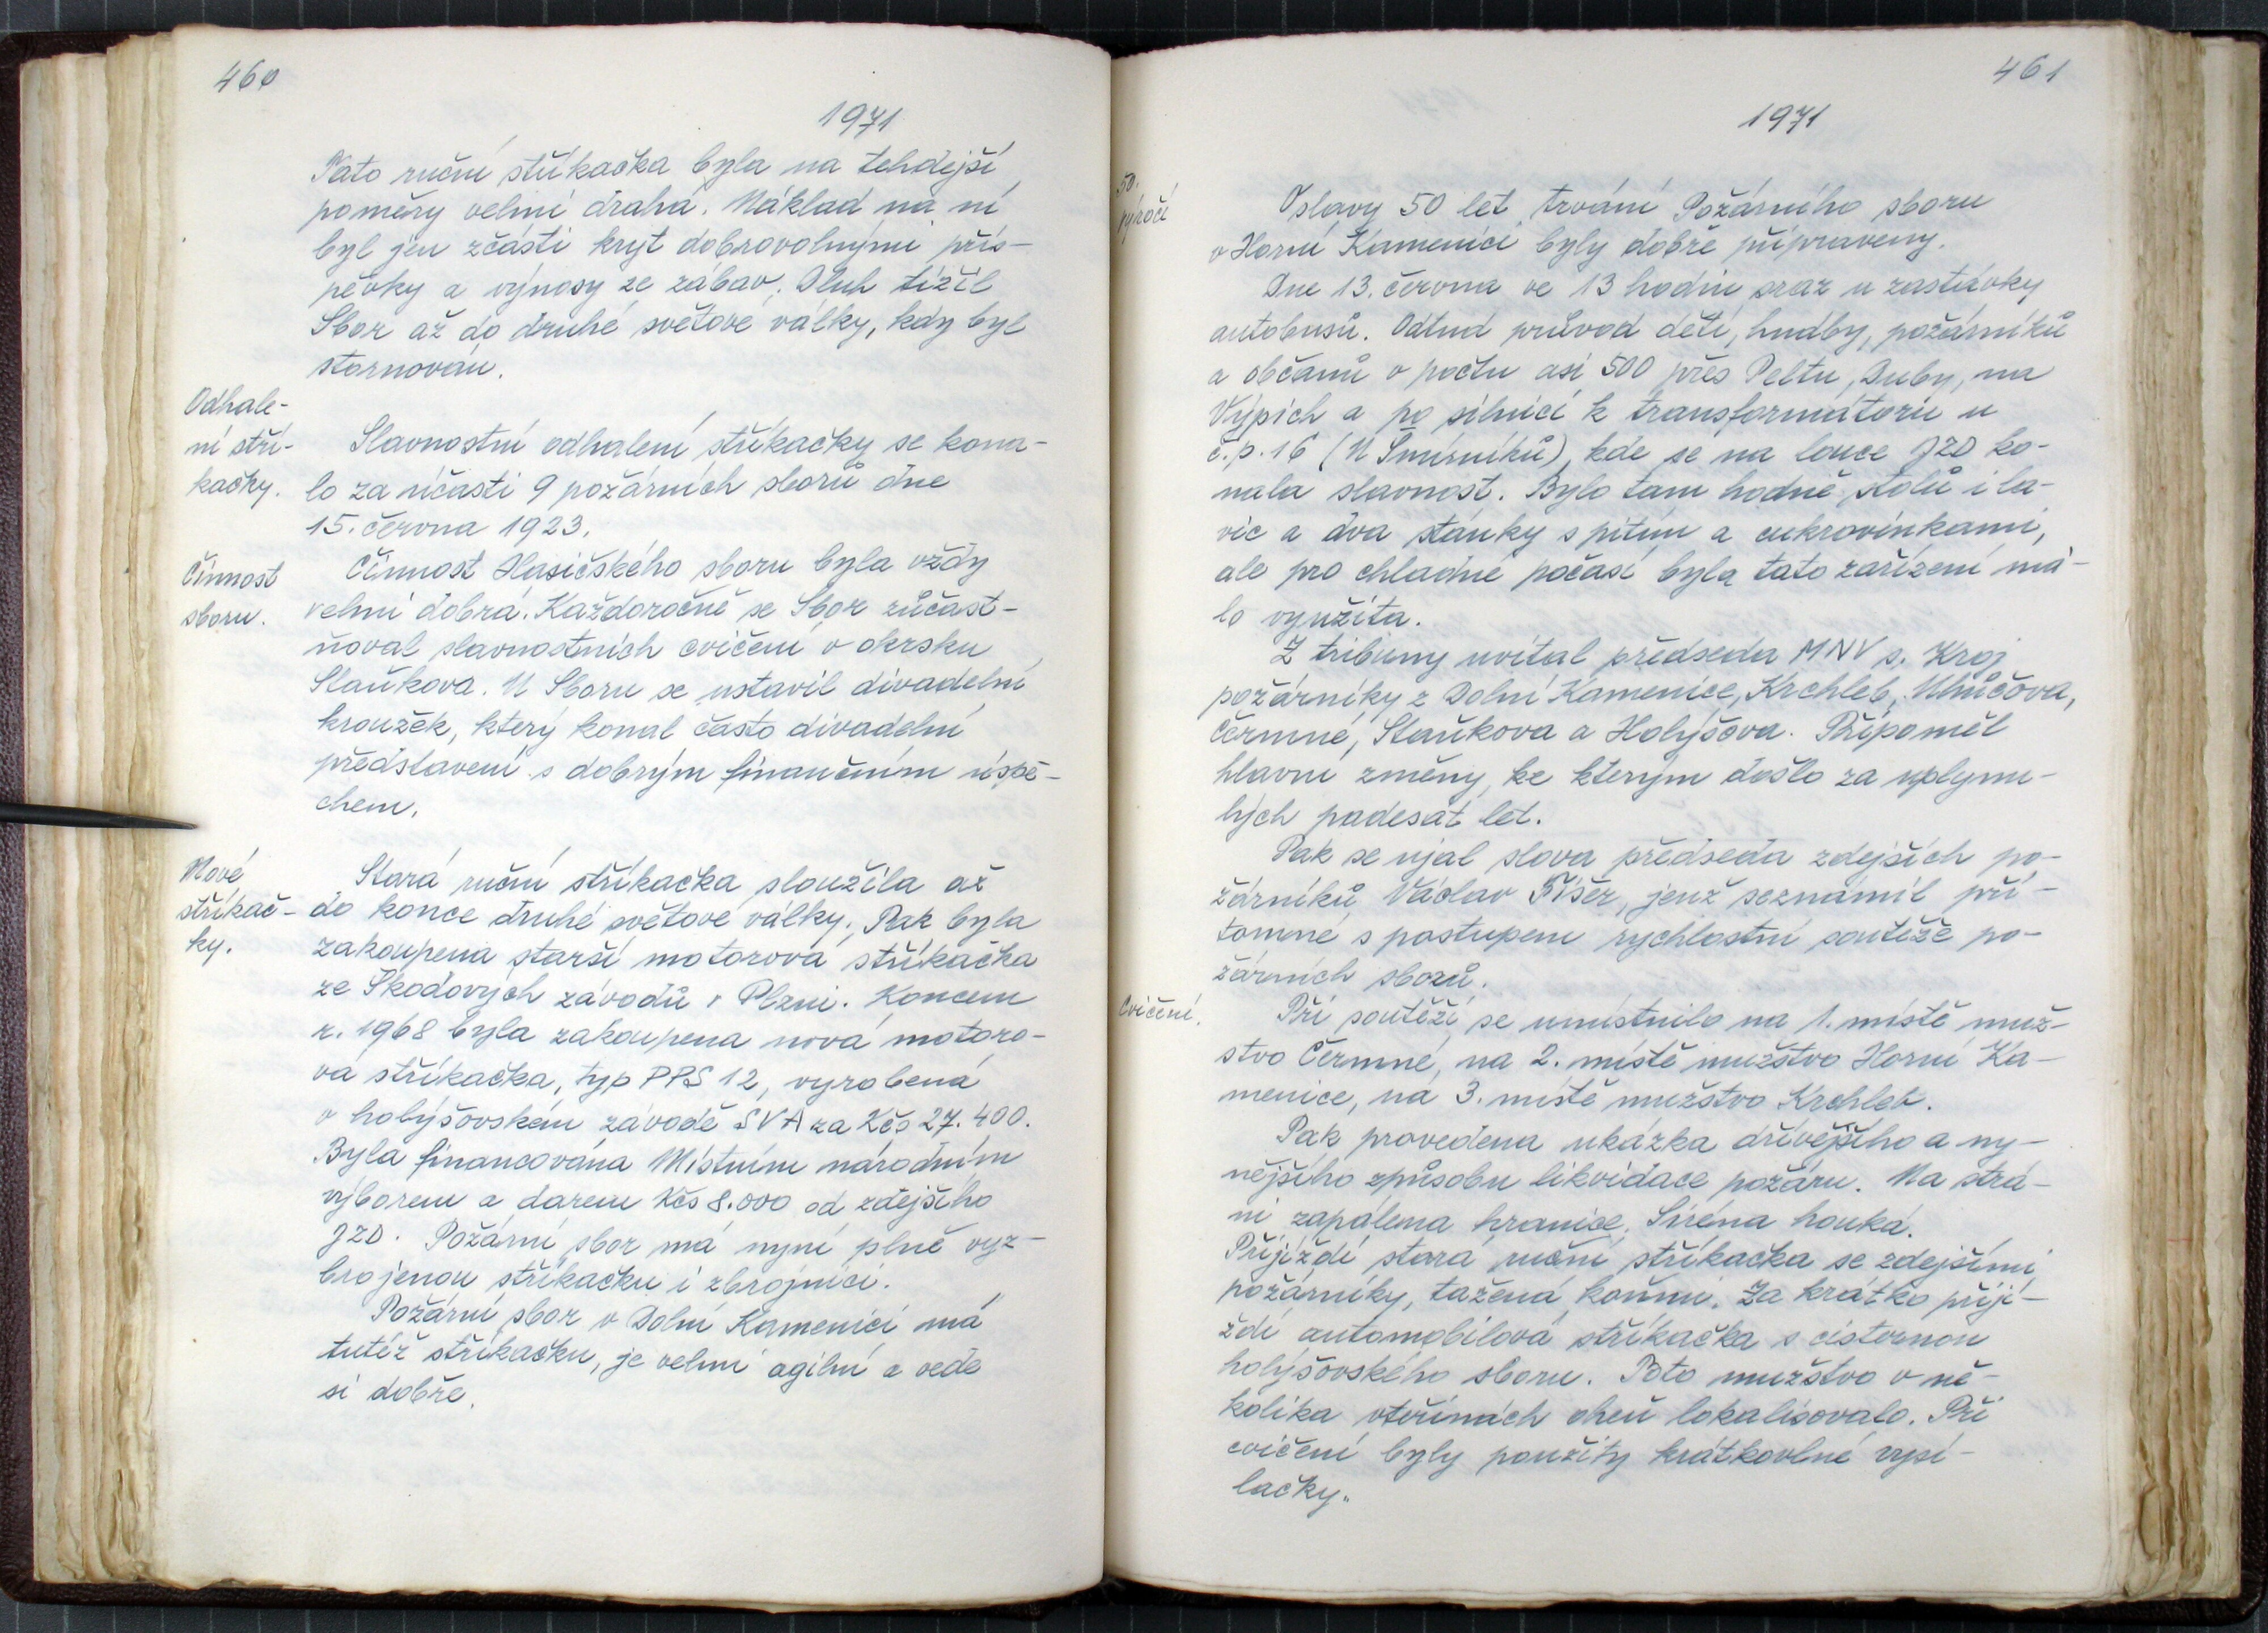 460
1971
Tato ruční stříkačka byla na tehdejší
poměry velmi drahá. Náklad na ní
byl jen zčásti kryt dobrovolnými přís-
pěvky a výnosy ze zábav. Dluh tížil
Sbor až do druhé světové války, kdy byl
stornován.
Odhale-
ní stří-
kačky.
Slavnostní odhalení stříkačky se kona-
lo za účasti 9 požárních sborů dne
15. června 1923.
Činnost
sboru.
Činnost Hasičského sboru byla vždy
velmi dobrá. Každoročně se Sbor zúčast-
ňoval slavnostních cvičení v okrsku
Staňkova. U Sboru se ustavil divadelní
kroužek, který konal často divadelní
představení s dobrým finančním úspě-
chem.
Nové
stříkač-
ky.
Stará ruční stříkačka sloužila až
do konce druhé světové války. Pak byla
zakoupena starší motorová stříkačka
ze Škodových závodů v Plzni. Koncem
r. 1968 byla zakoupena nová motoro-
vá stříkačka, typ PPS 12, vyrobená
v holýšovském závodě SVA za Kčs 27.400.
Byla financována Místním národním
výborem a darem Kčs 8.000 od zdejšího
JZD. Požární sbor má nyní plně vyz-
brojenou stříkačku i zbrojnici.
Požární sbor v Dolní Kamenici má
tutéž stříkačku, je velmi agilní a vede
si dobře.
461
1971
50.
výročí
Oslavy 50 let trvání Požárního sboru
v Horní Kamenici byly dobře připraveny.
Dne 13. června ve 13 hodin sraz u zastávky
autobusů. Odtud průvod dětí, hudby, požárníků
a občanů v počtu asi 500 přes Peltu, Duby, na
Výpich a po silnici k transformátoru u
č.p. 16 (U Šmírníků), kde se na louce JZD ko-
nala slavnost. Bylo tam hodně stolů i la-
vic a dva stánky s pitím a cukrovinkami,
ale pro chladné počasí byla tato zařízení má-
lo využita.
Z tribuny uvítal předseda MNV s. Kroj
požárníky z Dolní Kamenice, Krchleb, Uhlůčova,
Čermné, Staňkova a Holýšova. Připoměl
hlavní změny, ke kterým došlo za uplynu-
lých padesát let.
Pak se ujal slova předseda zdejších po-
žárníků Václav Fišer, jenž seznámil pří-
tomné s postupem rychlostní soutěže po-
žárních sborů.
Cvičení.
Při soutěži se umístnilo na 1. místě muž-
stvo Čermné, na 2. místě mužstvo Horní Ka-
menice, na 3. místě mužstvo Krchleb.
Pak provedena ukázka dřívějšího a ny-
nějšího způsobu likvidace požáru. Na strá-
ni zapálena hranice. Siréna houká.
Přijíždí stará ruční stříkačka se zdejšími
požárníky, tažená koňmi. Za krátko přijí-
ždí automobilová stříkačka s cisternou
holýšovského sboru. Toto mužstvo v ně-
kolika vteřinách oheň lokalisovalo. Při
cvičení byly použity krátkovlné vysí-
lačky.